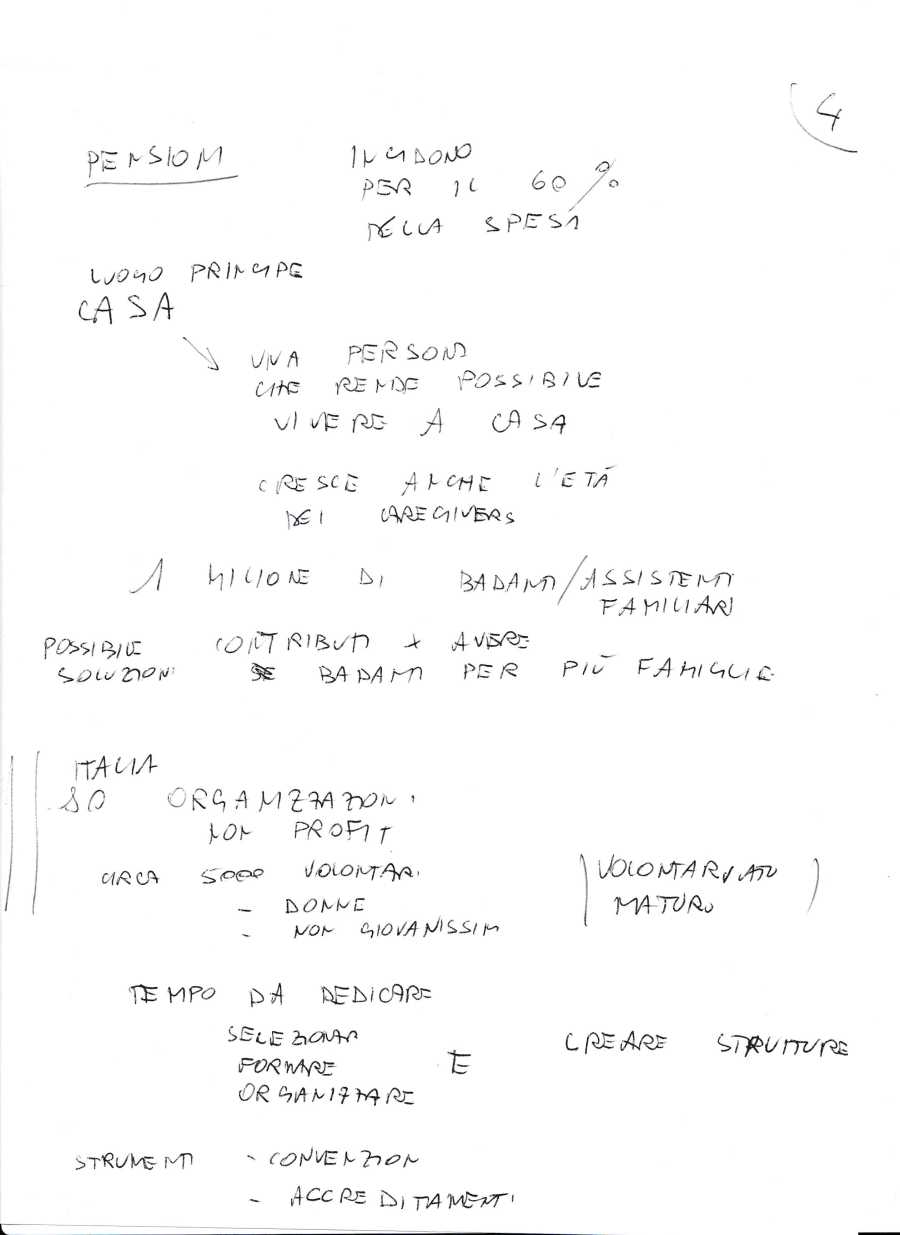 4
PENSIONI
INCIDONO
PER IL 60 %
DELLA SPESA
LUOGO PRINCIPE
CASA
UNA PERSONA
CHE RENDE POSSIBILE
VIVERE A CASA
CRESCE ANCHE L'ETÀ
DEI CAREGIVERS
1 MILIONE DI BADANTI/ASSISTENTI
FAMILIARI
POSSIBILI CONTRIBUTI X AVERE
SOLUZIONI BADANTI PER PIÙ FAMIGLIE
ITALIA
ORGANIZZAZIONI
NON PROFIT
CIRCA 5000 VOLONTARI
- DONNE
- NON GIOVANISSIMI
VOLONTARIATO
MATURO
TEMPO DA DEDICARE
SELEZIONARE
FORMARE E
ORGANIZZARE
CREARE STRUTTURE
STRUMENTI - CONVENZIONI
- ACCREDITAMENTI